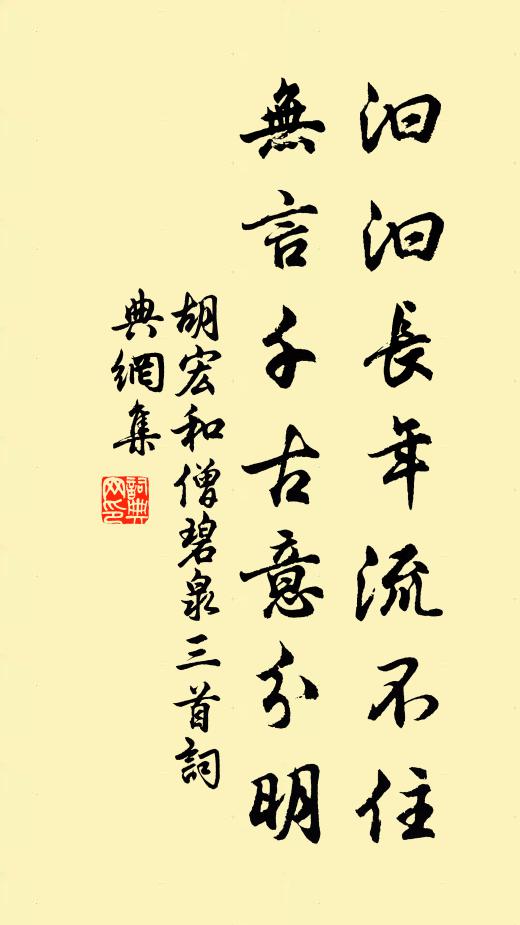 汩汩長年流不住
無言千古意分明
胡宏和僧碧泉三首詞
典網集
詞典网印